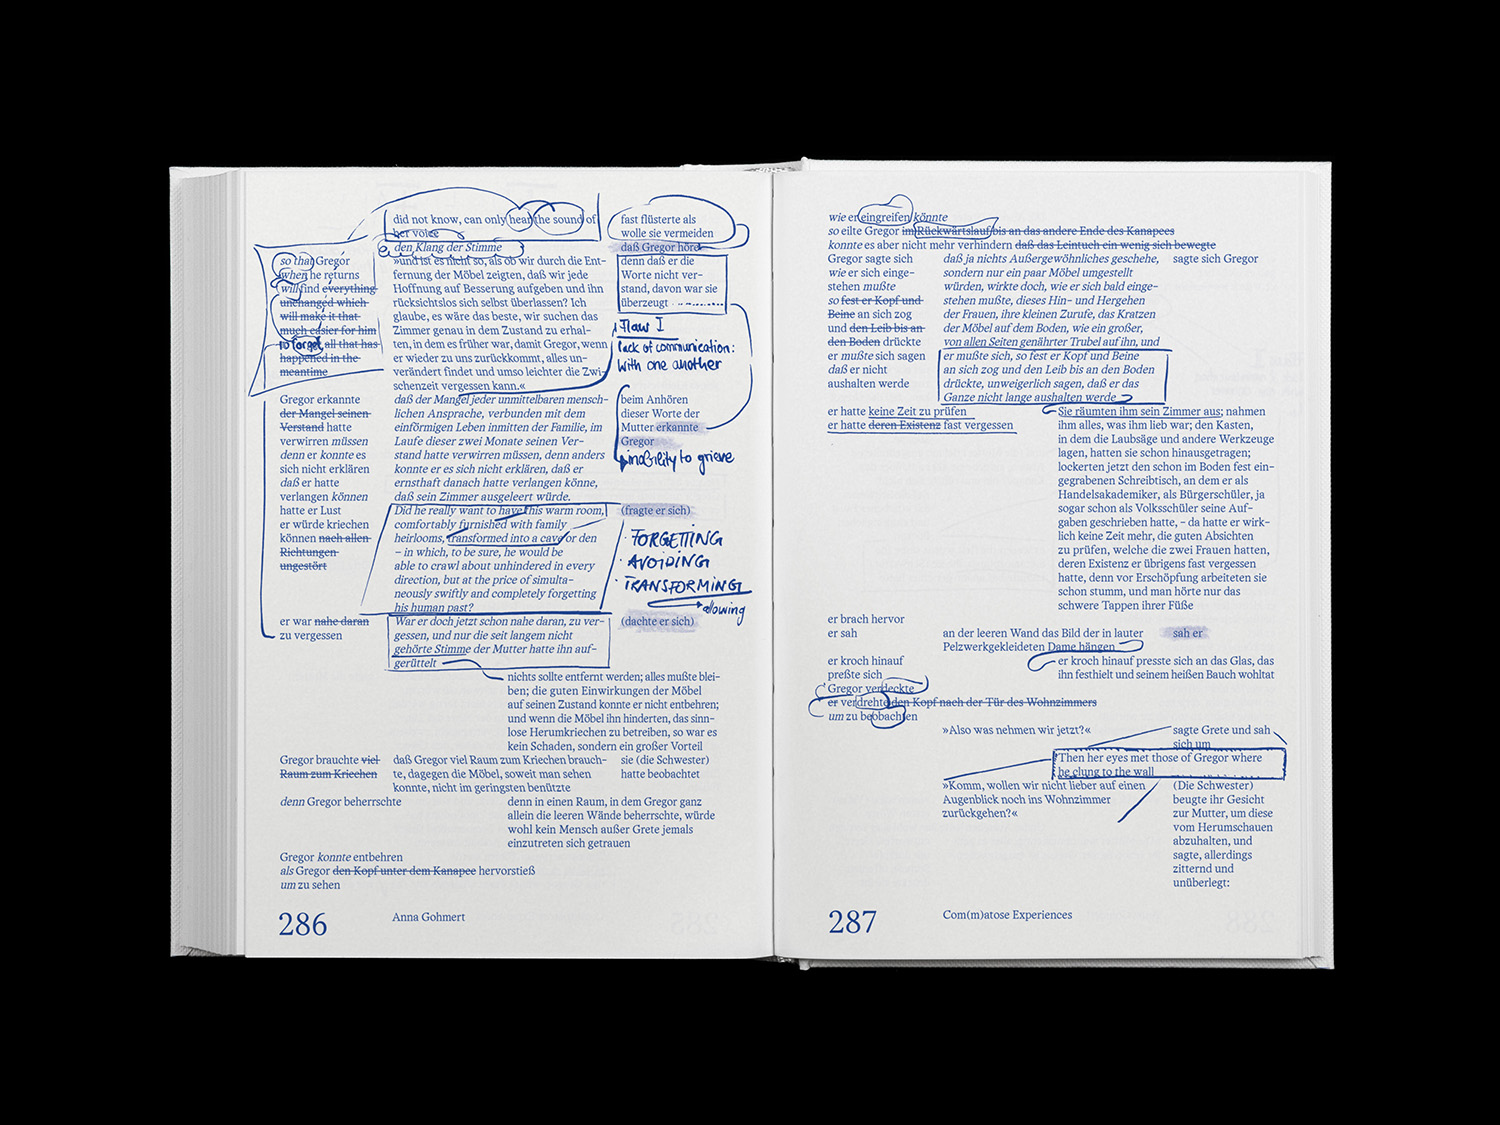 did not know, can only hear the sound of
her voice
den Klang der Stimme
»und ist es nicht so, als ob wir durch die Ent-
fernung der Möbel zeigten, daß wir jede
Hoffnung auf Besserung aufgeben und ihn
rücksichtslos sich selbst überlassen? Ich
glaube, es wäre das beste, wir suchen das
Zimmer genau in dem Zustand zu erhal-
ten, in dem es früher war, damit Gregor, wenn
er wieder zu uns zurückkommt, alles un-
verändert findet und umso leichter die Zwi-
schenzeit vergessen kann.«
fast flüsterte als
wolle sie vermeiden
daß Gregor höre
denn daß er die
Worte nicht ver-
stand, davon war sie
überzeugt
Flaw I
lack of communication:
with one another
so that Gregor
when he returns
will find everything
unchanged which
will make it that
much easier for him
to forget all that has
happened in the
meantime
Gregor erkannte
der Mangel seinen
Verstand hatte
verwirren müssen
denn er konnte es
sich nicht erklären
daß er hatte
verlangen können
hatte er Lust
er würde kriechen
können nach allen
Richtungen
ungestört
daß der Mangel jeder unmittelbaren mensch-
lichen Ansprache, verbunden mit dem
einförmigen Leben inmitten der Familie, im
Laufe dieser zwei Monate seinen Ver-
stand hatte verwirren müssen, denn anders
konnte er es sich nicht erklären, daß er
ernsthaft danach hatte verlangen könne,
daß sein Zimmer ausgeleert würde.
Did he really want to have this warm room,
comfortably furnished with family
heirlooms, transformed into a cave or den
– in which, to be sure, he would be
able to crawl about unhindered in every
direction, but at the price of simulta-
neously swiftly and completely forgetting
his human past?
beim Anhören
dieser Worte der
Mutter erkannte
Gregor
inability to grieve
(fragte er sich)
· FORGETTING
· AVOIDING
· TRANSFORMING
allowing
er war nahe daran
zu vergessen
War er doch jetzt schon nahe daran, zu ver-
gessen, und nur die seit langem nicht
gehörte Stimme der Mutter hatte ihn auf-
gerüttelt
(dachte er sich)
nichts sollte entfernt werden; alles mußte blei-
ben; die guten Einwirkungen der Möbel
auf seinen Zustand konnte er nicht entbehren;
und wenn die Möbel ihn hinderten, das sinn-
lose Herumkriechen zu betreiben, so war es
kein Schaden, sondern ein großer Vorteil
Gregor brauchte viel
Raum zum Kriechen
daß Gregor viel Raum zum Kriechen brauch-
te, dagegen die Möbel, soweit man sehen
konnte, nicht im geringsten benützte
sie (die Schwester)
hatte beobachtet
denn Gregor beherrschte
denn in einen Raum, in dem Gregor ganz
allein die leeren Wände beherrschte, würde
wohl kein Mensch außer Grete jemals
einzutreten sich getrauen
Gregor konnte entbehren
als Gregor den Kopf unter dem Kanapee hervorstieß
um zu sehen
286
Anna Gohmert
wie er eingreifen könnte
so eilte Gregor im Rückwärtslauf bis an das andere Ende des Kanapees
konnte es aber nicht mehr verhindern daß das Leintuch ein wenig sich bewegte
Gregor sagte sich
wie er sich einge-
stehen mußte
so fest er Kopf und
Beine an sich zog
und den Leib bis an
den Boden drückte
er mußte sich sagen
daß er nicht
aushalten werde
daß ja nichts Außergewöhnliches geschehe,
sondern nur ein paar Möbel umgestellt
würden, wirkte doch, wie er sich bald einge-
stehen mußte, dieses Hin- und Hergehen
der Frauen, ihre kleinen Zurufe, das Kratzen
der Möbel auf dem Boden, wie ein großer,
von allen Seiten genährter Trubel auf ihn, und
er mußte sich, so fest er Kopf und Beine
an sich zog und den Leib bis an den Boden
drückte, unweigerlich sagen, daß er das
Ganze nicht lange aushalten werde
sagte sich Gregor
er hatte keine Zeit zu prüfen
er hatte deren Existenz fast vergessen
Sie räumten ihm sein Zimmer aus; nahmen
ihm alles, was ihm lieb war; den Kasten,
in dem die Laubsäge und andere Werkzeuge
lagen, hatten sie schon hinausgetragen;
lockerten jetzt den schon im Boden fest ein-
gegrabenen Schreibtisch, an dem er als
Handelsakademiker, als Bürgerschüler, ja
sogar schon als Volksschüler seine Auf-
gaben geschrieben hatte, – da hatte er wirk-
lich keine Zeit mehr, die guten Absichten
zu prüfen, welche die zwei Frauen hatten,
deren Existenz er übrigens fast vergessen
hatte, denn vor Erschöpfung arbeiteten sie
schon stumm, und man hörte nur das
schwere Tappen ihrer Füße
er brach hervor
er sah
an der leeren Wand das Bild der in lauter
Pelzwerkgekleideten Dame hängen
sah er
er kroch hinauf
preßte sich
Gregor verdeckte
er verdrehte den Kopf nach der Tür des Wohnzimmers
um zu beobachten
er kroch hinauf presste sich an das Glas, das
ihn festhielt und seinem heißen Bauch wohltat
»Also was nehmen wir jetzt?«
sagte Grete und sah
sich um
Then her eyes met those of Gregor where
he clung to the wall
»Komm, wollen wir nicht lieber auf einen
Augenblick noch ins Wohnzimmer
zurückgehen?«
(Die Schwester)
beugte ihr Gesicht
zur Mutter, um diese
vom Herumschauen
abzuhalten, und
sagte, allerdings
zitternd und
unüberlegt:
287
Com(m)atose Experiences